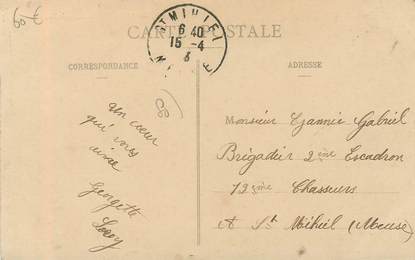 60 €
CARTE POSTALE
ST MIHIEL
6 40
15 -4
CORRESPONDANCE
ADRESSE
un cœur
qui vous
aime
Georgette
Monsieur Gabriel
Brigadier 2ème Escadron
12ème Chasseurs
A St Mihiel (Meuse)